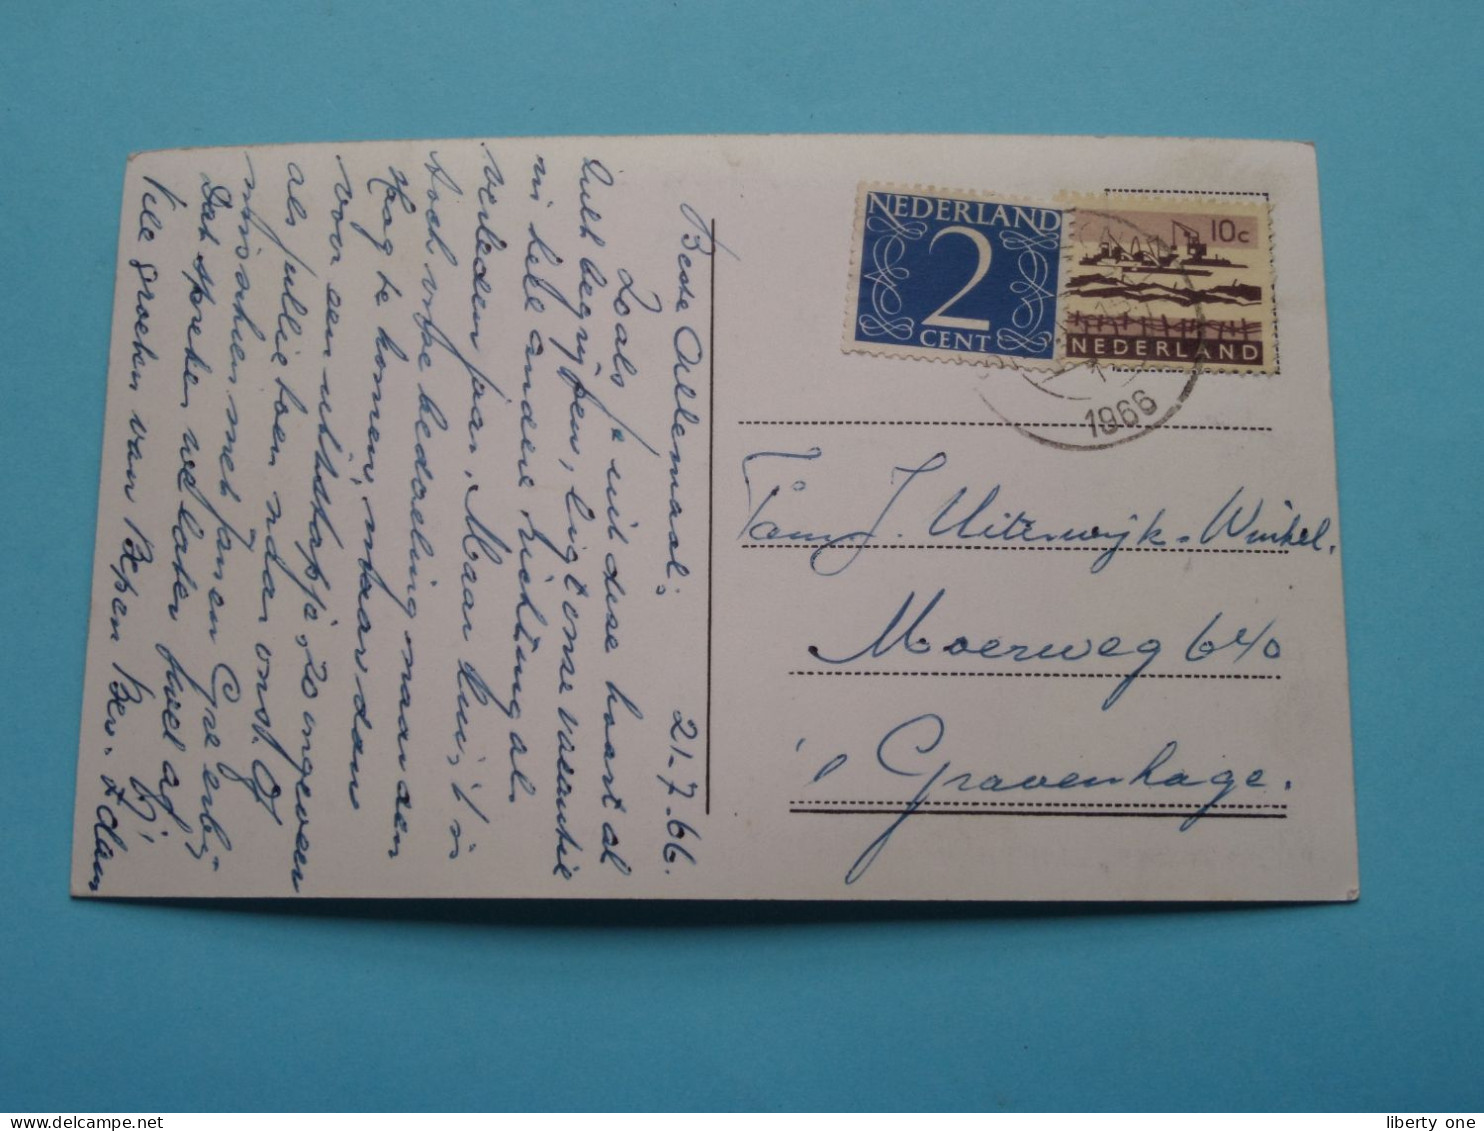 Beste Allemaal: 21-7-66.
Zoals je uit deze kaart al
zult begrijpen, ligt onze vacantie
in hele andere richting als
verleden jaar. Maar leuk, 't is
toch onze bedoeling naar den
Haag te komen, maar dan
voor een uitstapje, zo ongeveer
als jullie toen naar ons. Of
misschien met Jan en Gré erbij
Dat spreken we later wel af
Vele groeten van Bep en
NEDERLAND
2
CENT
10c
NEDERLAND
1966
Fam J. Uiterwijk-Winkel.
Moerweg 640
's Gravenhage.
liberty one